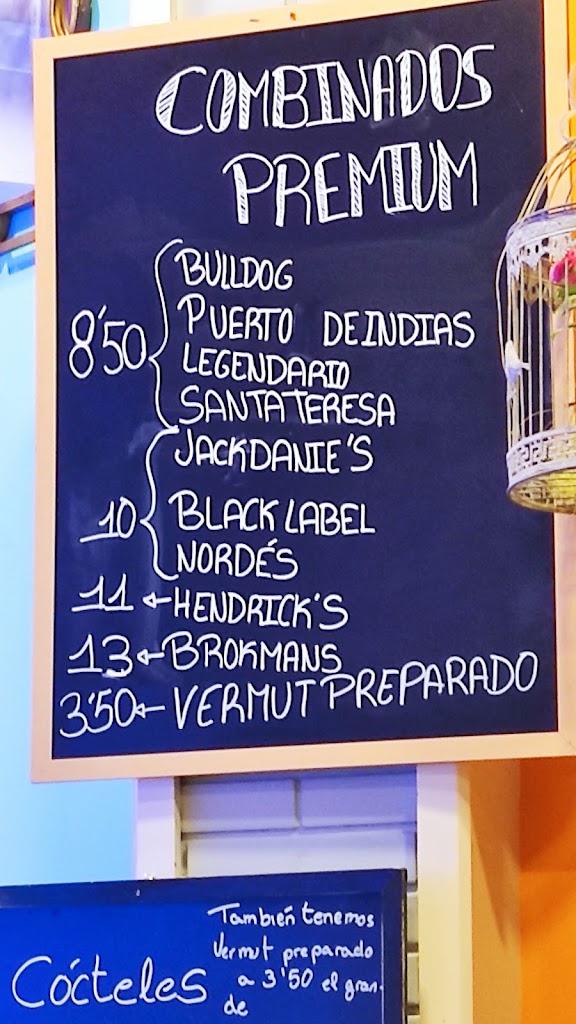 COMBINADOS
PREMIUM
BULLDOG
PUERTO DE INDIAS
8'50
LEGENDARIO
SANTA TERESA
JACK DANIE'S
10 BLACK LABEL
NORDÉS
11 ← HENDRICK'S
13 ← BROKMANS
3'50 ← VERMUT PREPARADO
También tenemos
Vermut preparado
Cócteles a 3'50 el gran-
de